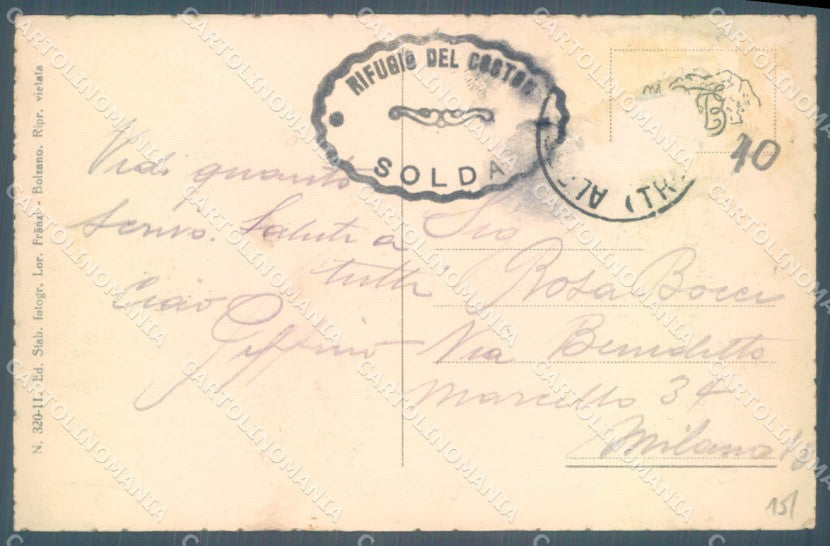 RIFUGIO DEL COSTON
SOLDA
10
Vedi quanto
scrivo. Saluti a
tutti
Ciao
Peppino
Sig
Rosa Bocci
Via Benedetto
Marcello 34
Milano
15/
N. 320-II. Ed. Stab. fotogr. Lor. Fränzl - Bolzano. Ripr. vietata
CARTOLINOMANIA